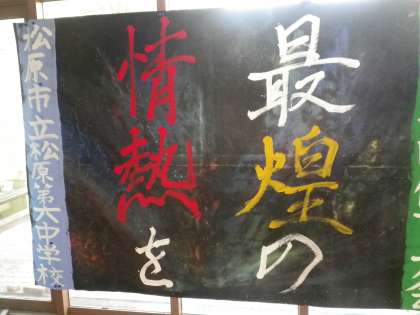 最煌の
情熱を
松原市立松原第六中学校